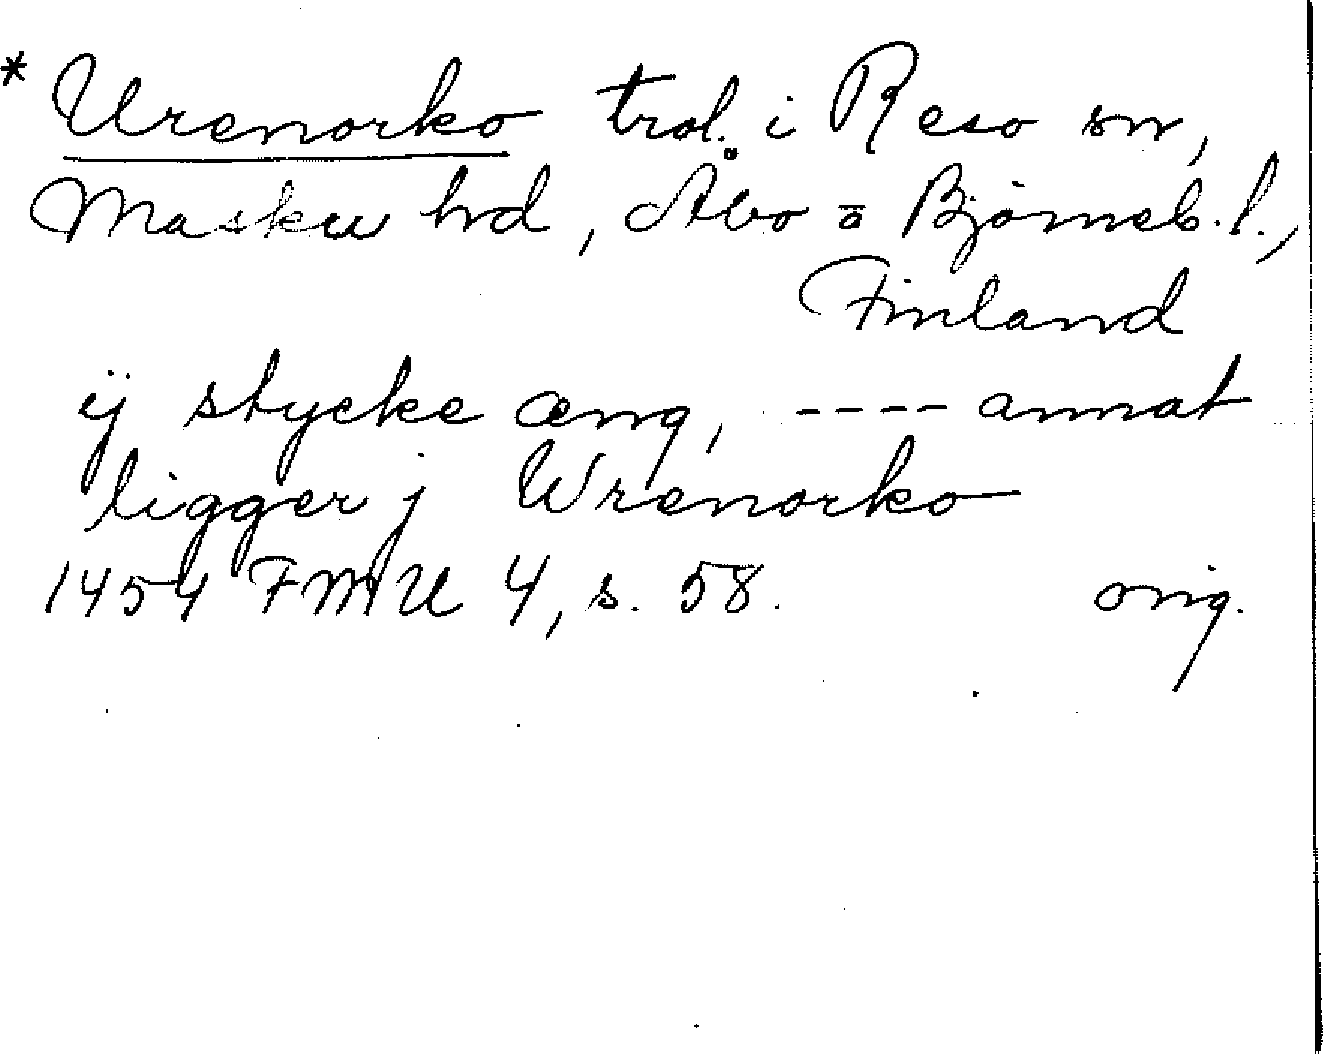 * Urenorko trol. i Reso sn,
Masku hd, Åbo o Björneb. l.,
Finland
ij stycke æng, ---- annat
ligger j Wrenorko
1454 FMU 4, s. 58. orig.